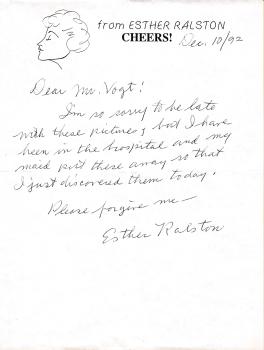 from ESTHER RALSTON
CHEERS!
Dec. 10/92
Dear Mr. Vogt!
I'm so sorry to be late
with these pictures, but I have
been in the hospital and my
maid put these away so that
I just discovered them today.
Please forgive me—
Esther Ralston